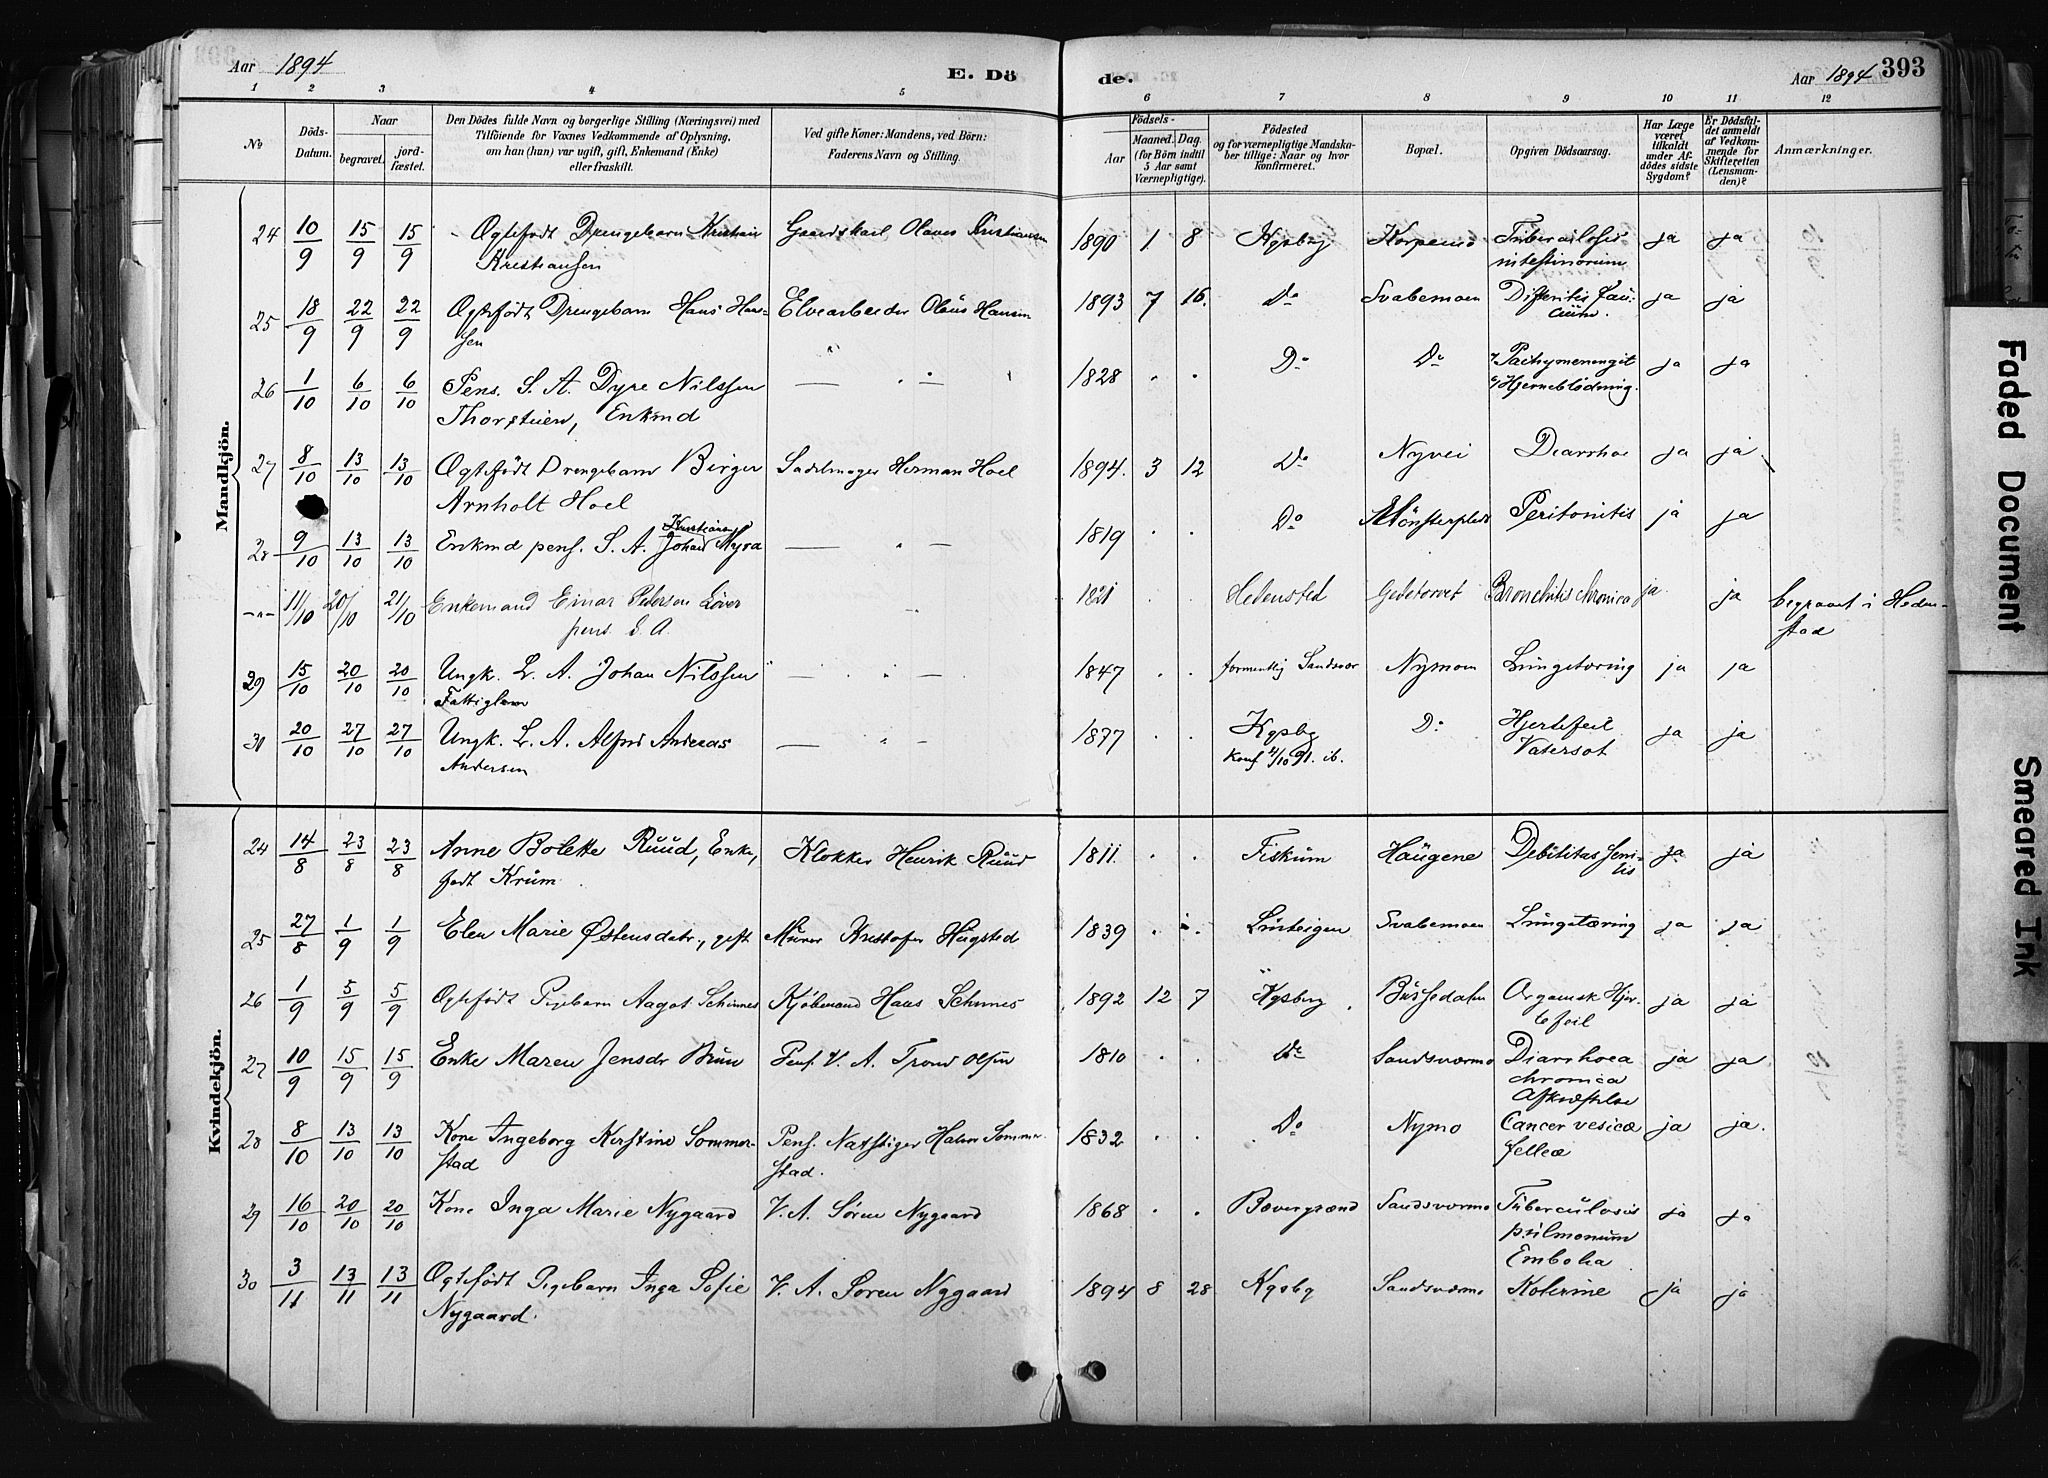 Aar 1894
E. Dö
de.
Aar 1894 393
1 2 3 4 5 6 7 8 9 10 11 12
No
Döds-Datum.
Naar
begravet.
jord-fæstet.
Den Dödes fulde Navn og borgerlige Stilling (Næringsvei) med
Tilföiende for Voxnes Vedkommende af Oplysning,
om han (hun) var ugift, gift, Enkemand (Enke)
eller fraskilt.
Ved gifte Koner: Mandens, ved Börn:
Faderens Navn og Stilling.
Födsels-
Aar
Maaned. Dag.
(for Börn indtil
5 Aar samt
Værnepligtige).
Födested
og for værnepligtige Mandska-
ber tillige: Naar og hvor
konfirmeret.
Bopæl.
Opgiven Dödsaarsag.
Har Læge
været
tilkaldt
under Af-
dödes sidste
Sygdom?
Er Dödsfal-
det anmeldt
af Vedkom-
mende for
Skifteretten
(Lensman-
den)?
Anmærkninger.
Mandkjön.
24 10/9 15/9 15/9 Ogtefødt Drengebarn Kristian Gaardskarl Olaves Kristiansen 1890 1 8 Kgsbrg Korpemo Tuberculosis ja ja
Kristiansen intestinorum
25 18/9 22/9 22/9 Ogtefødt Drengebarn Hans Han- Elvearbeider Olaus Hansen 1893 7 16. Do Svabemoen Difteritis fau- ja ja
sen cium.
26 1/10 6/10 6/10 Pens. S. A. Dyre Nilssen — " — 1828 . . Do Do Pachymeningit ja ja
Thorstuen, Enkmd Hjerneblödning.
27 8/10 13/10 13/10 Ogtefödt Drengebarn Birger Sadelmager Herman Hoel 1894. 3 12 Do Nyvei Diarrhoe ja ja
Arnholt Hoel
28 9/10 13/10 13/10 Enkmd pens. S. A. Johan Kristians Myra — " — 1819 . . Do Mönsterplads Peritonitis ja ja
-"- 11/10 20/10 21/10 Enkemand Einar Pedersen Löver " 1821 . . Hedensted Gedetorvet Bronchitis chronica ja ja begravet i Heden-
pens. S. A. stad
29 15/10 20/10 20/10 Ungk. L. A. Johan Nilssen — " — 1847 . . formentlig Sandsvær Nymoen Lungetæring ja ja
Fattiglem
30 20/10 27/10 27/10 Ungk. L. A. Alfred Andreas — " — 1877 Kgsbg Do Hjertefeil ja ja
Andersen konf 4/10 91. ib. Vatersot
Kvindekjön.
24 14/8 23/8 23/8 Anne Bolette Ruud, Enke, Klokker Henrik Ruud 1811. . . Fiskum Haugene Debilitas seni- ja ja
født Krum lis
25 27/8 1/9 1/9 Elen Marie Østensdatr., gift Murer Kristofer Hugsted 1839 . . Lurteigen Svabemoen Lungetæring ja ja
26 1/9 5/9 5/9 Ogtefödt Pigebarn Aagot Schinnes Kjöbmand Hans Schinnes 1892 12 7 Kgsberg Bussedalen Organisk Hjer- ja ja
tefeil
27 10/9 15/9 15/9 Enke Maren Jensdr Brun Pens. V. A. Trond Olsen 1810 . . Do Sandsværmo Diarrhoea ja ja
chronica
Afkræftelse
28 8/10 13/10 13/10 Kone Ingeborg Kirstine Sommer- Pens. Natstiger Halvor Sommer- 1832 . . Do Nymo Cancer vesicæ ja ja.
stad stad. felleæ
29 16/10 20/10 20/10 Kone Inga Marie Nygaard V. A. Sören Nygaard 1868 . . Bævergrænd Sandsværmo Tuberculosis ja ja
pulmonum
Embolia
30 3/11 13/11 13/11 Ogtefödt Pigebarn Inga Sofie V. A. Sören Nygaard 1894 8 28 Kgsbg Sandsværmo Kolerine ja ja
Nygaard.
Faded Document
Smeared Ink